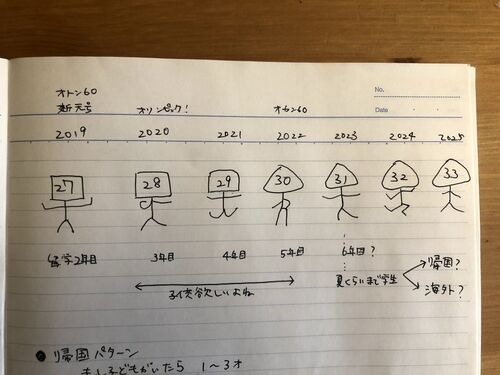 No.
Date
オトン60
新元号 オリンピック! オカン60
2019 2020 2021 2022 2023 2024 2025
27 28 29 30 31 32 33
留学2年目 3年目 4年目 5年目 6年目?
子供欲しいよね 夏くらいまで学生 帰国?
海外?
● 帰国パターン
もし子どもがいたら 1~3才